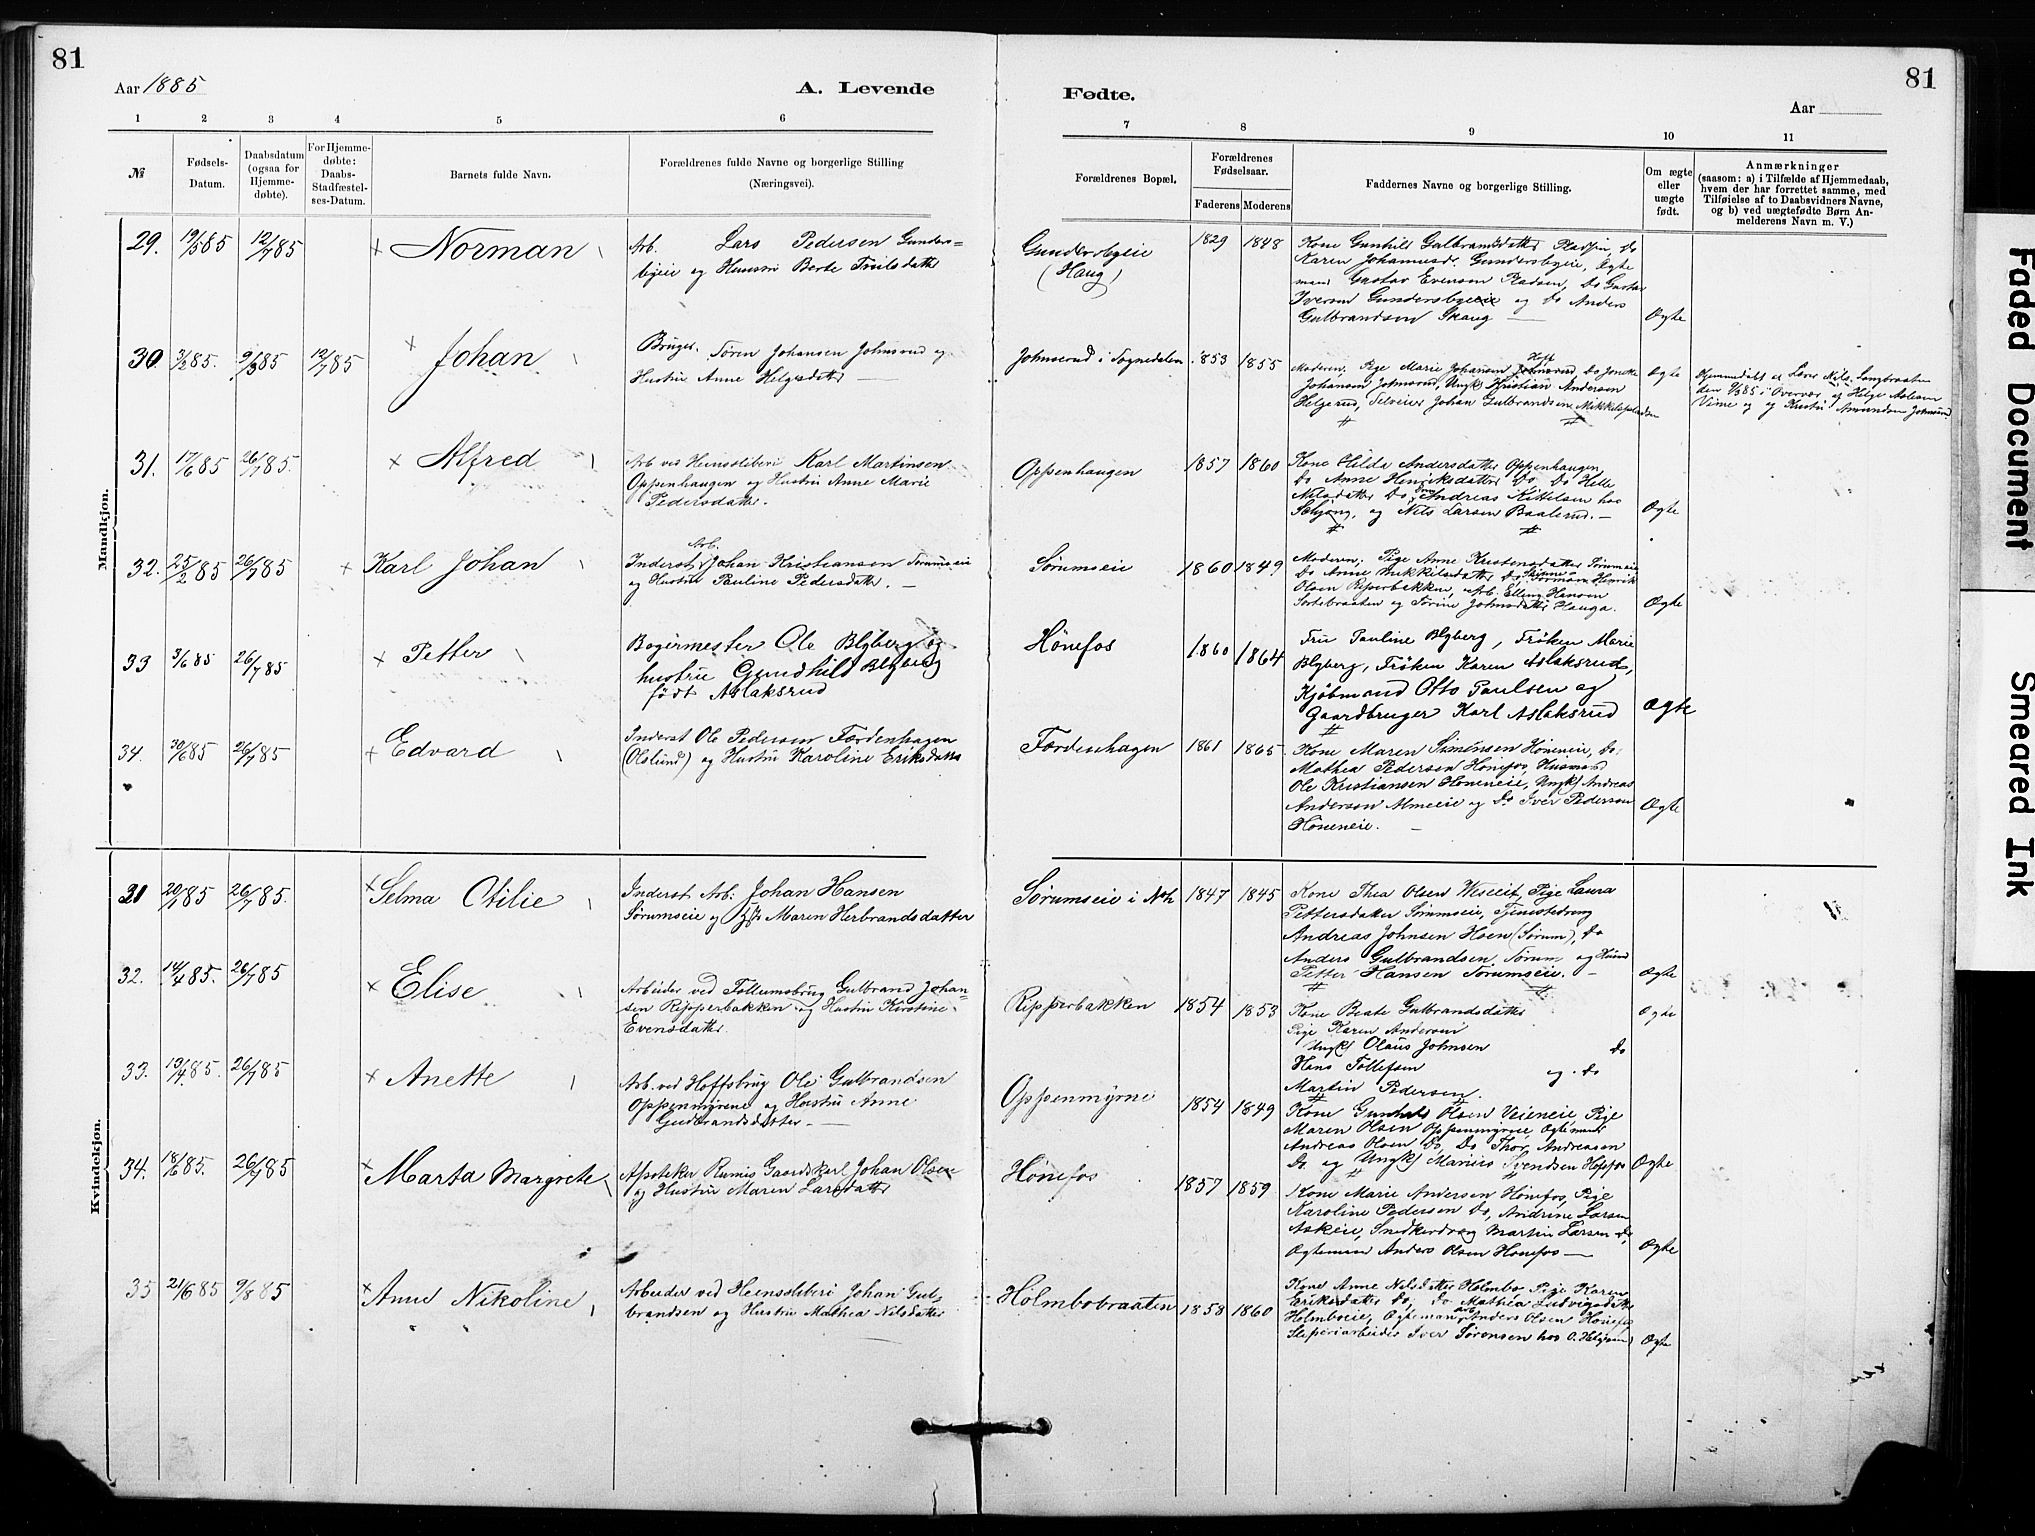 81
Aar 1885
A. Levende
1 2 3 4 5 6
№
Fødsels-Datum.
Daabsdatum (ogsaa for Hjemmedøbte).
For Hjemmedøbte: Daabs-Stadfæstelses-Datum.
Barnets fulde Navn.
Forældrenes fulde Navne og borgerlige Stilling (Næringsvei).
Mandkjøn.
29. 19/5 85 12/7 85 × Norman
Arb. Lars Pedersen Gunders=
byeie og Hustru Berte Truls datter
30. 3/2 85. 9/3 85 12/7 85 × Johan
Bruger. Søren Johansen Johnsrud og
Hustru Anne Helgesdatter —
31. 17/6 85 26/7 85. × Alfred
Arb. ved Heenssliberi Karl Martinsen
Oppenhaugen og Hustru Anne Marie
Pedersdatter.
32. 25/2 85 26/7 85 × Karl Johan
Arb.
Inderst Johan Kristiansen Sørumseie
og Hustru Pauline Pedersdatter. —
33 3/6 85 26/7 85 × Petter
Bogermester Ole Blyberg og
hustru Gundhild Blyberg
født Aslaksrud
34. 30/6 85 26/7 85 × Edvard
Inderst Ole Pedersen Færdenhagen
(Oslund) og Hustru Karoline Eriksdatter
Kvindekjøn.
31 20/1 85 26/7 85. × Selma Otilie
Inderst Arb: Johan Hansen
Sørumseie og Maren Herbrandsdatter
32. 14/4 85. 26/7 85 × Elise
Arbeider ved Follumsbrug Gulbrand Johan=
sen Ripperbakken og Hustru Kirstine
Evensdatter.
33. 19/4 85. 26/7 85 × Anette
Arb. ved Hoffsbrug Ole Gulbrandsen
Oppenmyrene og Hustru Anne
Gudbrandsdatter. —
34. 18/6 85. 26/7 85 × Marta Margrete
Apoteker Rumis Gaardskarl Johan Olsen
og Hustru Maren Larsdatter
35 21/6 85 9/8 85 × Anne Nikoline
Arbeider ved Heenssliberi Johan Gul-
brandsen og Hustru Mathea Nilsdatter
81
Fødte.
Aar
7 8 9 10 11
Forældrenes Bopæl.
Forældrenes Fødselsaar.
Faderens Moderens
Faddernes Navne og borgerlige Stilling.
Om ægte eller uægte født.
Anmærkninger
(saasom: a) i Tilfælde af Hjemmedaab,
hvem der har forrettet samme, med
Tilføielse af to Daabsvidners Navne,
og b) ved uægtefødte Børn Anmelderens Navn m. V.)
Gundersbyeie
(Haug)
1829 1848
Kone Gunhild Gulbrandsdatter Pladsen Do
Karen Johannesd. Gundersbyeie, Ægte
mand Gustav Evensen Pladsen, Do Gustav
Iversen Gundersbyeie og Do Anders
Gulbrandsen Skaug —
Ægte
Johnsrud i Sognedalen 1853 1855
Moderen, Pige Marie Johansen
Johansen Johnsrud, Ungk. Kristian Andersen
Helgerud, Selveier Johan Gulbrandsen Mikkelspladsen
Ægte
Hjemmedøbt af Lærer Nils Langbraaten
den 9/3 85 i Overvær af Helge Aslesen
Vime og Hustru Amunda Johnsrud
Oppenhaugen 1857 1860
Kone Hilda Andersdatter Oppenhaugen,
Do Anne Henriksdatter Do, Do Helle
Nilsdatter Do, Andreas Kittelsen hos
Schjong, og Nils Larsen Baalerud. —
Ægte
Sørumseie 1860 1849
Moderen, Pige Anne Kristensdatter Sørumseie
Do Anne Mikkelsdatter Do, Henrik
Olsen Ripperbakken, Arb. Elling Hansen
Sortebraaten og Sørine Johnsdatter Hauga.
Ægte
Hønefos 1860 1864
Fru Pauline Blyberg, Frøken Marie
Blyberg, Frøken Karen Aslaksrud,
Kjøbmand Otto Paulsen og
Gaardbruger Karl Aslaksrud
Ægte
Færdenhagen 1861 1865
Kone Maren Simensen Høneneie, Do.
Mathea Pedersen Hønefos, Husmand
Ole Kristiansen Høneneie, Ungk. Andreas
Andersen Almeie og Do Iver Pedersen
Høneneie. —
Ægte
Sørumseie i Noh 1847 1845
Kone Thea Olsen Weseie, Pige Laura
Pettersdatter Sørumseie, Tjenestedreng
Andreas Johnsen Hoen (Sørum), Do
Anders Gulbrandsen Sørum og
Petter Hansen Sørumseie. —
Ægte
Ripperbakken 1854 1853
Kone Beate Gulbrandsdatter
Pige Karen Andersen
Ungk. Olaus Johnsen Do
Hans Tollefsen og Do
Martin Pedersen.
Ægte
Oppenmyrne 1854 1849
Kone Gunhild Olsen Veieneie, Pige
Maren Olsen Oppenmyrene, Ægtemand
Andreas Olsen Do, Do Thor Andreasen
Do og Ungk. Marius Svendsen Hoffos
Ægte
Hønefos 1857 1859
Kone Marie Andersen Hønefos, Pige
Karoline Pedersen Do, Andrine Larsen
Askeie, Snedkerdreng Martin Larsen Do,
Ægtemand Anders Olsen Hønefos —
Ægte
Holmbobraaten 1858 1860
Kone Anne Nilsdatter Holmbo, Pige Karen
Eriksdatter Do, Do Mathea Ludvigsdatter
Holmboeie, Ægtemand Anders Olsen Hønefos
Sliperiarbeider Iver Sørensen hos O. Helgesen
Ægte
Faded Document
Smeared Ink